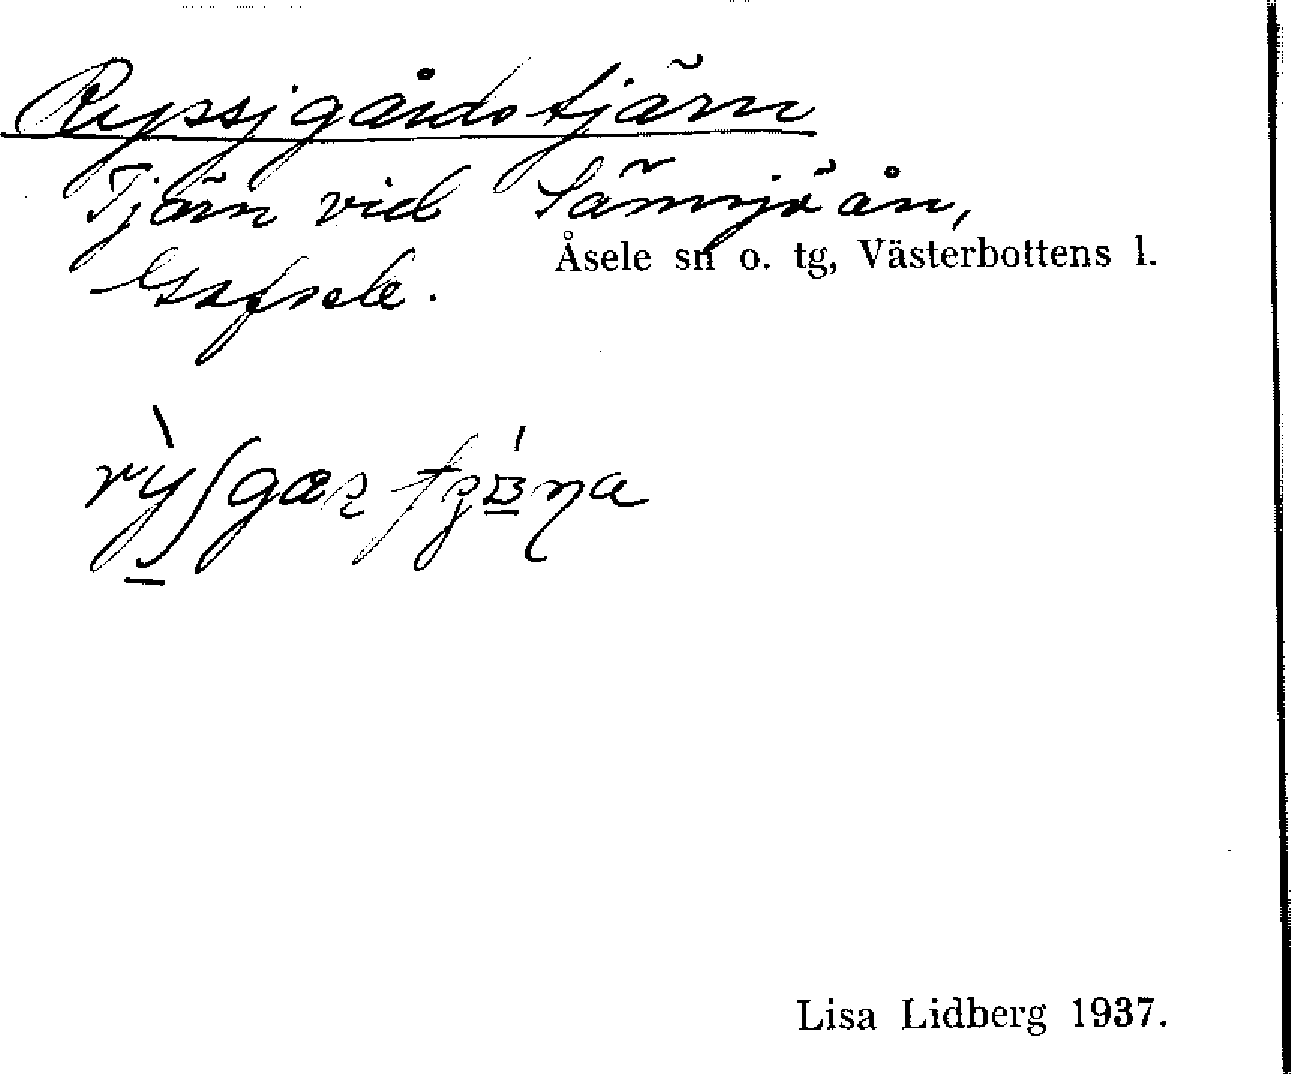 Ryssjgårdstjärn
Tjärn vid Sämsjöån,
Åsele sn o. tg, Västerbottens l.
Gafsele.
Lisa Lidberg 1937.